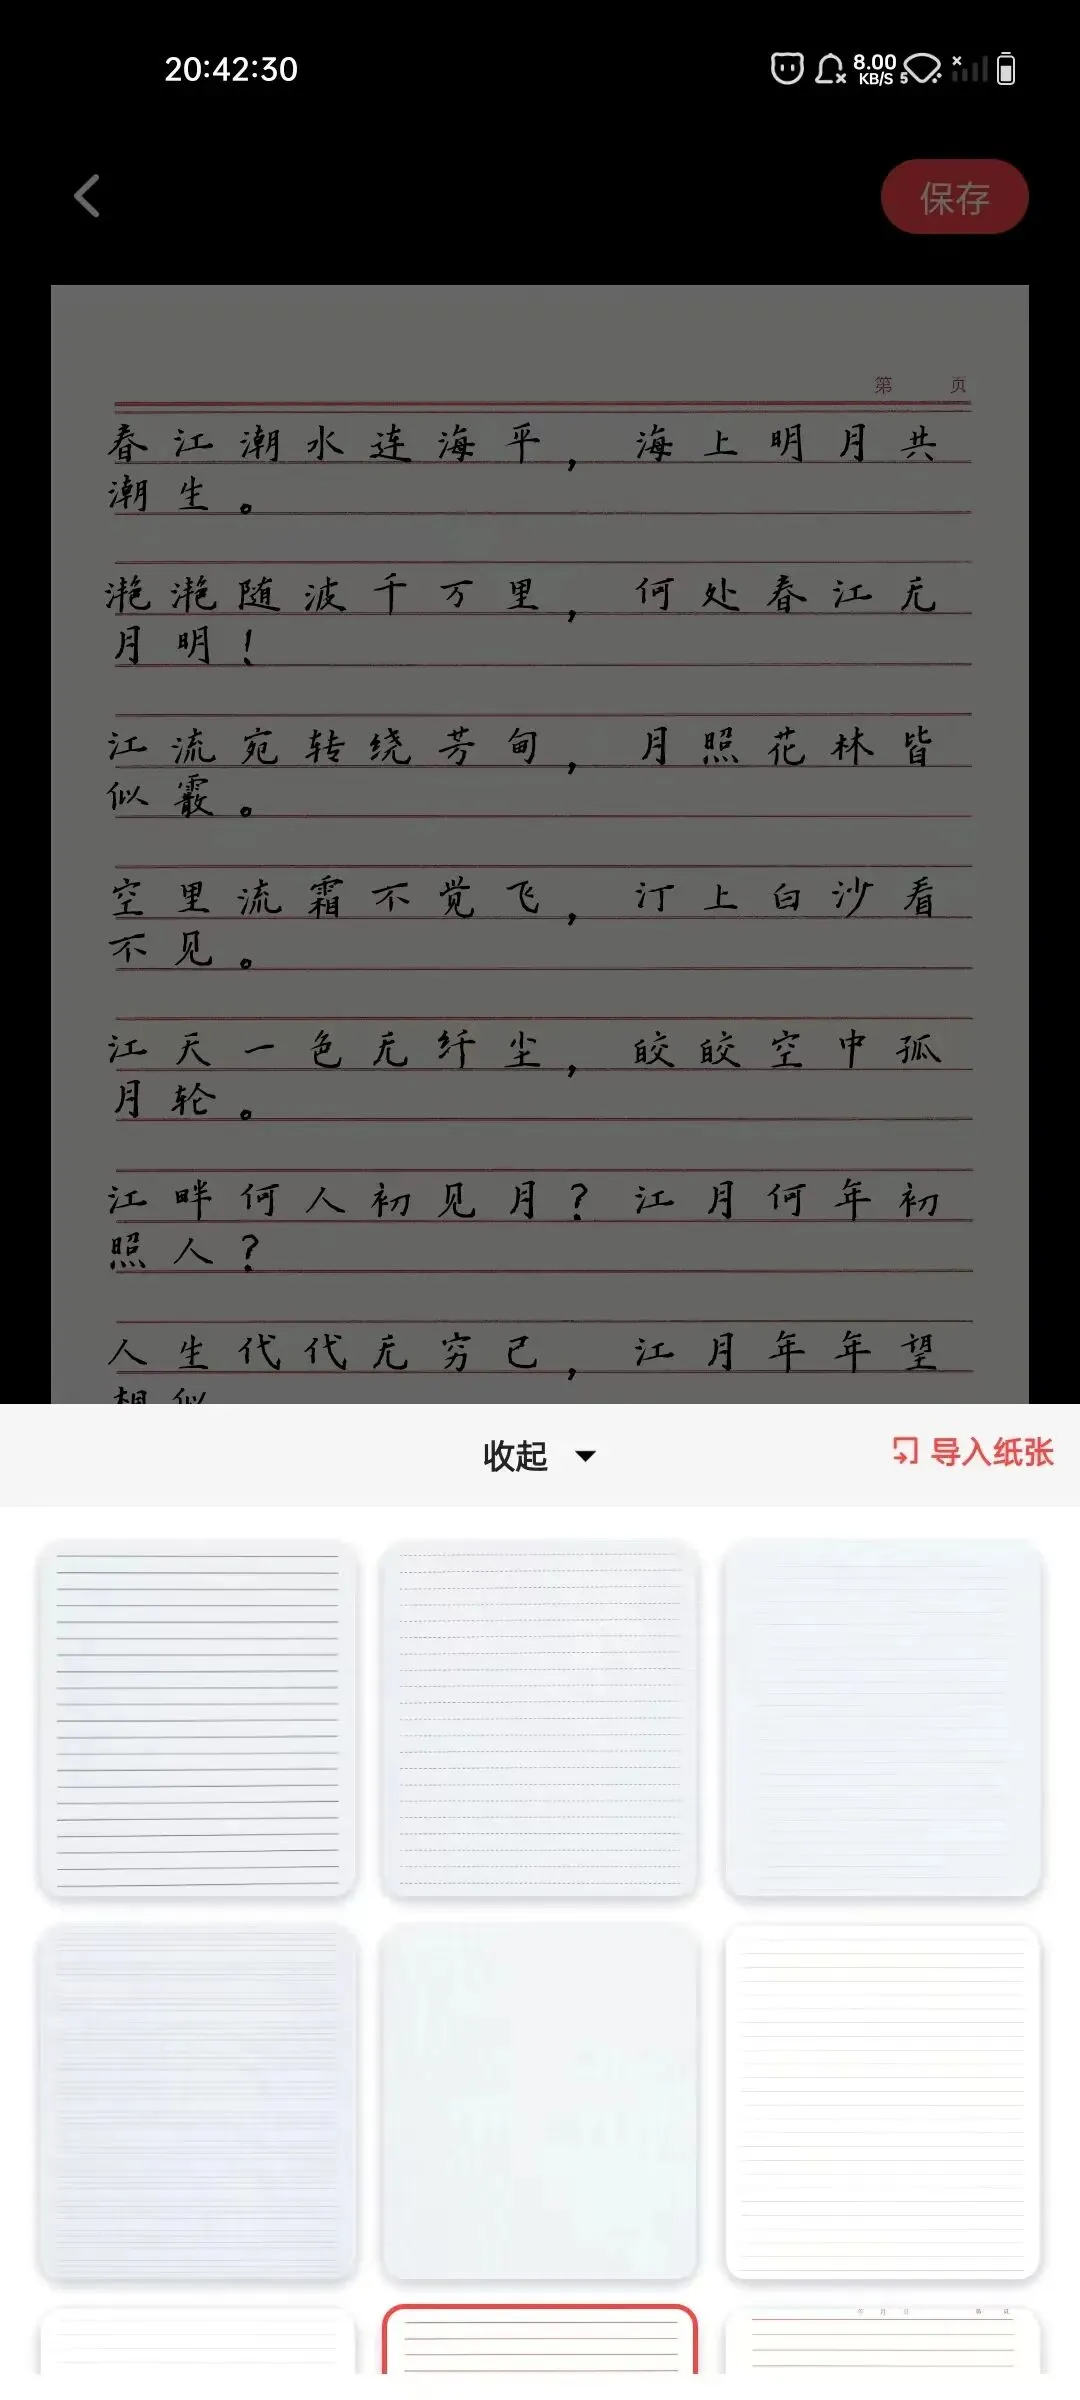 20:42:30
8.00
KB/S
5
保存
第 页
春江潮水连海平，海上明月共
潮生。
滟滟随波千万里，何处春江无
月明！
江流宛转绕芳甸，月照花林皆
似霰。
空里流霜不觉飞，汀上白沙看
不见。
江天一色无纤尘，皎皎空中孤
月轮。
江畔何人初见月？江月何年初
照人？
人生代代无穷已，江月年年望
相似
收起
导入纸张
年 月 日 第 页